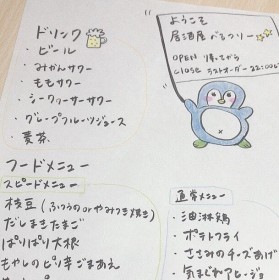 ドリンク
・ビール
・みかんサワー
・ももサワー
・シークヮーサーサワー
・グレープフルーツジュース
・麦茶
ようこそ
居酒屋
OPEN 帰ってから
CLOSE ラストオーダー 22:00
フードメニュー
スピードメニュー
枝豆(ふつうのorやみつき焼き)
だしまきたまご
ぱりぱり大根
もやしのピリ辛ごまあえ
通常メニュー
・油淋鶏
・ポテトフライ
・ささみのチーズあげ
・気まぐれアヒージョ